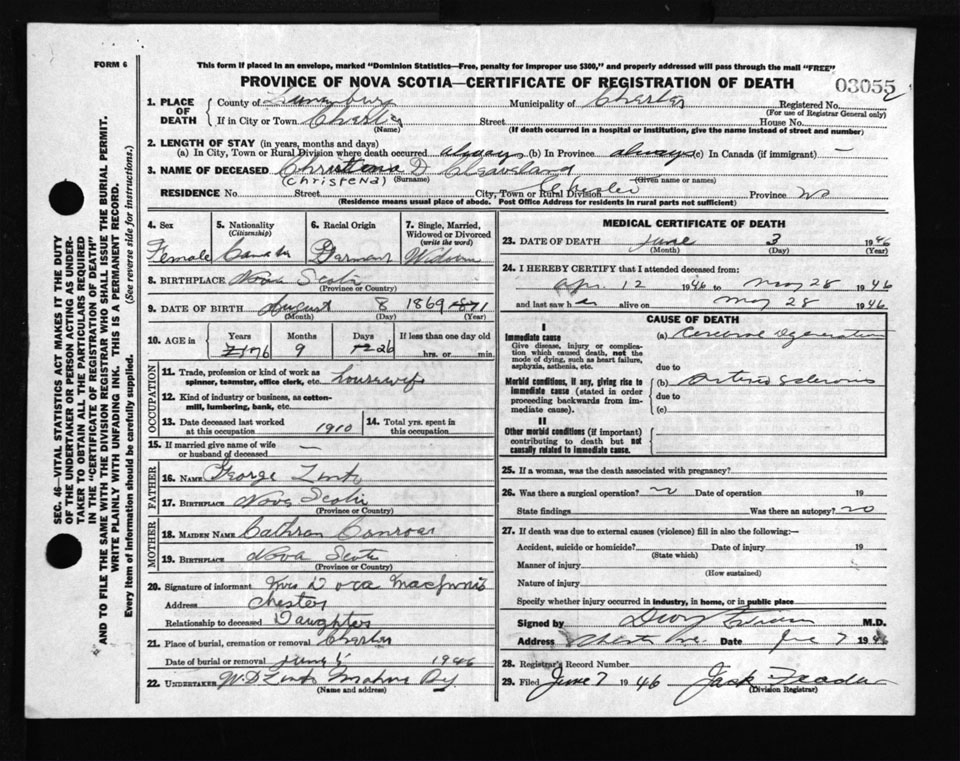 FORM 6
This form if placed in an envelope, marked "Dominion Statistics—Free, penalty for improper use $300," and properly addressed will pass through the mail "FREE"
PROVINCE OF NOVA SCOTIA—CERTIFICATE OF REGISTRATION OF DEATH
03055
1. PLACE OF DEATH
County of Lunenburg Municipality of Chester Registered No.
(For use of Registrar General only)
If in City or Town Chester Street House No.
(Name) (If death occurred in a hospital or institution, give the name instead of street and number)
2. LENGTH OF STAY (in years, months and days)
(a) In City, Town or Rural Division where death occurred always (b) In Province always (c) In Canada (if immigrant) —
3. NAME OF DECEASED D Cleaveland
(Christena) (Surname) (Given name or names)
RESIDENCE No. Street City, Town or Rural Division Chester Province NS
(Residence means usual place of abode. Post Office Address for residents in rural parts not sufficient)
4. Sex
Female
5. Nationality
(Citizenship)
6. Racial Origin
German
7. Single, Married, Widowed or Divorced
(write the word)
Widow
8. BIRTHPLACE Nova Scotia
(Province or Country)
9. DATE OF BIRTH August 8 1869 1871
(Month) (Day) (Year)
10. AGE in
Years 76
Months 9
Days 26
If less than one day old
hrs. or min.
OCCUPATION
11. Trade, profession or kind of work as
spinner, teamster, office clerk, etc. housewife
12. Kind of industry or business, as cotten-
mill, lumbering, bank, etc.
13. Date deceased last worked
at this occupation 1910
14. Total yrs. spent in
this occupation
15. If married give name of wife
or husband of deceased —
FATHER
16. NAME George Zink
17. BIRTHPLACE Nova Scotia
(Province or Country)
MOTHER
18. MAIDEN NAME Cathran
19. BIRTHPLACE Nova Scotia
(Province or Country)
20. Signature of informant Mrs Dora MacInnis
Address Chester
Relationship to deceased Daughter
21. Place of burial, cremation or removal Chester
Date of burial or removal June 1946
22. UNDERTAKER W.D Zink Mahone By
(Name and address)
MEDICAL CERTIFICATE OF DEATH
23. DATE OF DEATH June 3 1946
(Month) (Day) (Year)
24. I HEREBY CERTIFY that I attended deceased from:
Apr. 12 1946 to May 28 1946
and last saw her alive on May 28 1946
CAUSE OF DEATH
I
Immediate cause
Give disease, injury or complica-
tion which caused death, not the
mode of dying, such as heart failure,
asphyxia, asthenia, etc.
(a) Cerebral Degeneration
due to
Morbid conditions, if any, giving rise to
immediate cause (stated in order
proceeding backwards from im-
mediate cause).
(b) Arterio Sclerosis
due to
(c)
II
Other morbid conditions (if important)
contributing to death but not
causally related to immediate cause.
25. If a woman, was the death associated with pregnancy?
26. Was there a surgical operation? no Date of operation 19
State findings Was there an autopsy? no
27. If death was due to external causes (violence) fill in also the following:—
Accident, suicide or homicide? Date of injury 19
(State which)
Manner of injury
(How sustained)
Nature of injury
Specify whether injury occurred in industry, in home, or in public place
Signed by M.D.
Address Chester Date June 7 1946
28. Registrar's Record Number
29. Filed June 7 1946 Jack
(Division Registrar)
SEC. 46—VITAL STATISTICS ACT MAKES IT THE DUTY
OF THE UNDERTAKER OR PERSON ACTING AS UNDER-
TAKER TO OBTAIN ALL THE PARTICULARS REQUIRED
IN THE "CERTIFICATE OF REGISTRATION OF DEATH"
AND TO FILE THE SAME WITH THE DIVISION REGISTRAR WHO SHALL ISSUE THE BURIAL PERMIT.
WRITE PLAINLY WITH UNFADING INK. THIS IS A PERMANENT RECORD.
Every item of information should be carefully supplied. (See reverse side for instructions.)